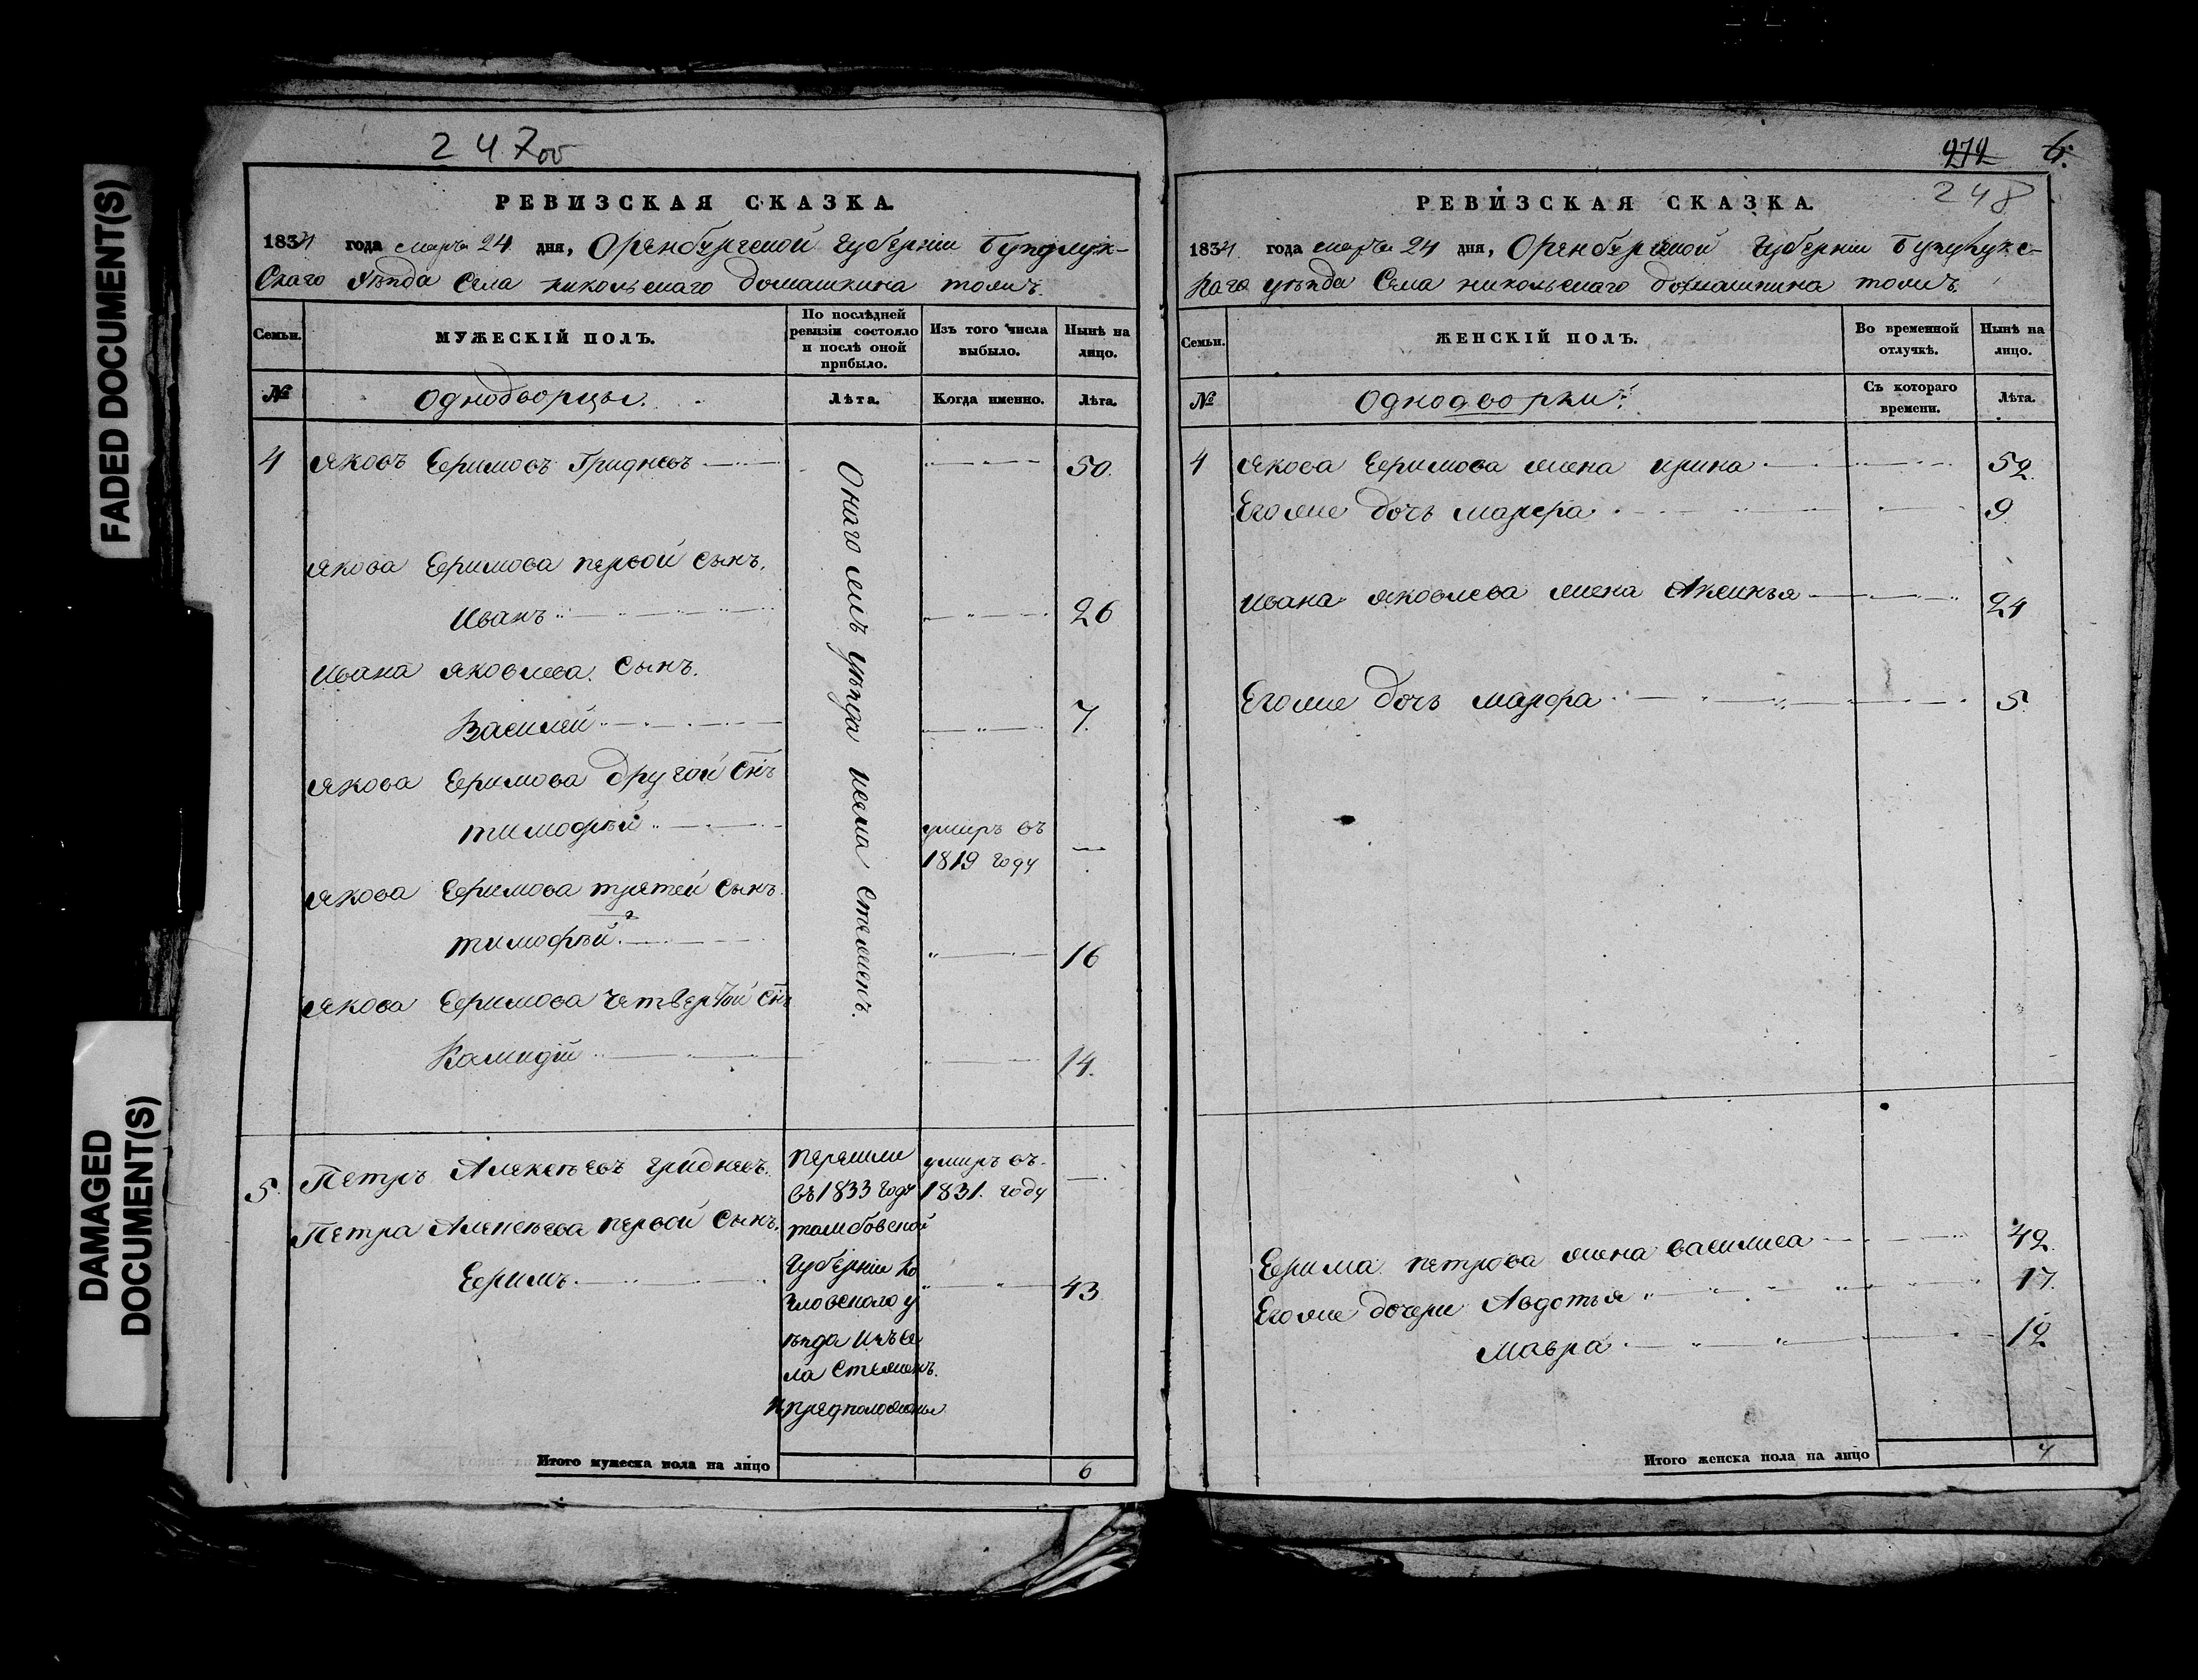 FADED DOCUMENT(S)
DAMAGED
DOCUMENT(S)
247об
РЕВИЗСКАЯ СКАЗКА.
1834 года марта 24 дня, Оренбургской Губернiи Бузулук-
скаго уѣзда Села никольскаго домашкина тожъ
Семьи.
МУЖЕСКIЙ ПОЛЪ.
По послѣдней
ревизiи состояло
и послѣ оной
прибыло.
Изъ того числа
выбыло.
Нынѣ на
лицо.
№
Однодворцы.
Лѣта.
Когда именно.
Лѣта.
4 Яковъ Ефимовъ Гридневъ 50.
Якова Ефимова первой сынъ.
Иванъ 26
Ивана Яковлева сынъ.
Василей 7.
Якова Ефимова другой снъ
тимофѣй умиръ въ
1819 году
Якова Ефимова третей сынъ
тимофѣй 16
Якова Ефимова четвертой снъ
14.
Онаго жъ уѣзда села стеженъ.
5. Петръ Алексѣевъ гридневъ.
Петра Алексѣева первой сынъ.
Ефимъ 43
перешли
въ 1833 году
тамбовской
Губернiи Ко
зловскаго у
ѣзда изъ се
ла Стеженъ.
умиръ въ
1831. году
Итого мужеска пола на лицо 6
272 6.
248
РЕВИЗСКАЯ СКАЗКА.
1834 года марта 24 дня, Оренбургской Губернiи Бузулукс-
каго уѣзда Села никольскаго домашкина тожъ
Семьи.
ЖЕНСКIЙ ПОЛЪ.
Во временной
отлучкѣ.
Нынѣ на
лицо.
№
Однодворки
Съ котораго
времени.
Лѣта.
4 Якова Ефимова жена ирина 52.
Егоже дочь марфа 9
Ивана Яковлева жена Аксинья 24
Егоже дочь марфа 5
Ефима петрова жена василиса 42.
Егоже дочери Авдотья 17.
Мавра 12
Итого женска пола на лицо